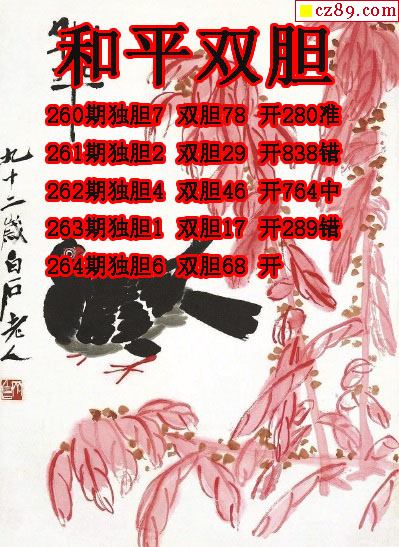 cz89.com
和平双胆
260期独胆7 双胆78 开280准
261期独胆2 双胆29 开838错
262期独胆4 双胆46 开764中
263期独胆1 双胆17 开289错
264期独胆6 双胆68 开
九十二岁白石老人